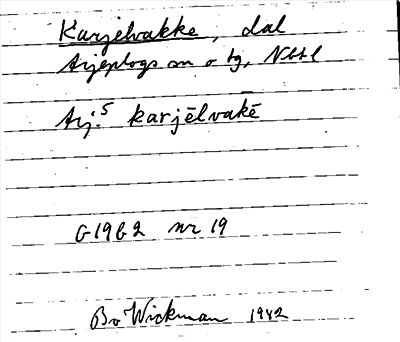 Karjelvakke, dal
Arjeplogs sn o tg, Nbtl
Arj.⁵ karjēlvakē
G1962 nr 19
Bo Wickman 1942